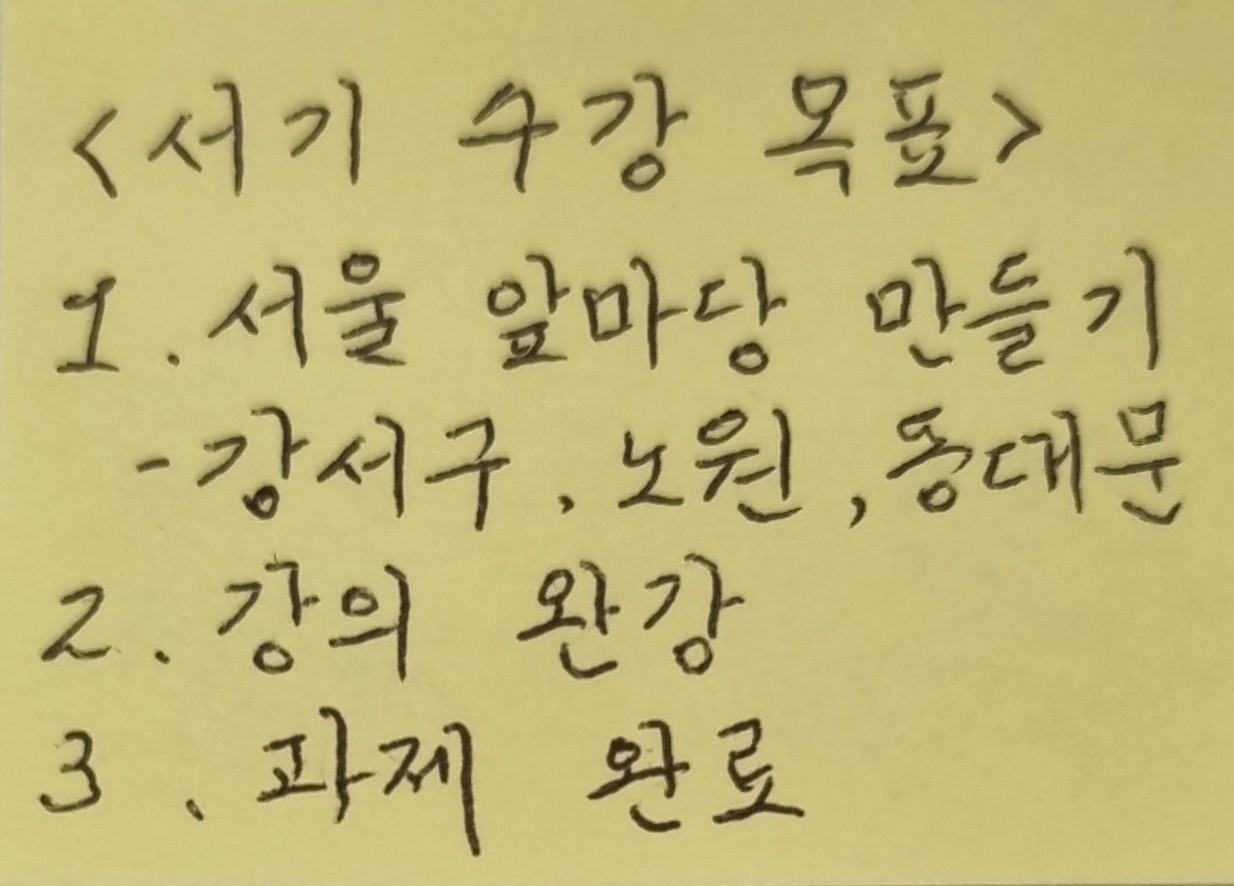 <서기 수강 목표>
1. 서울 앞마당 만들기
- 강서구, 노원, 동대문
2. 강의 완강
3. 과제 완료